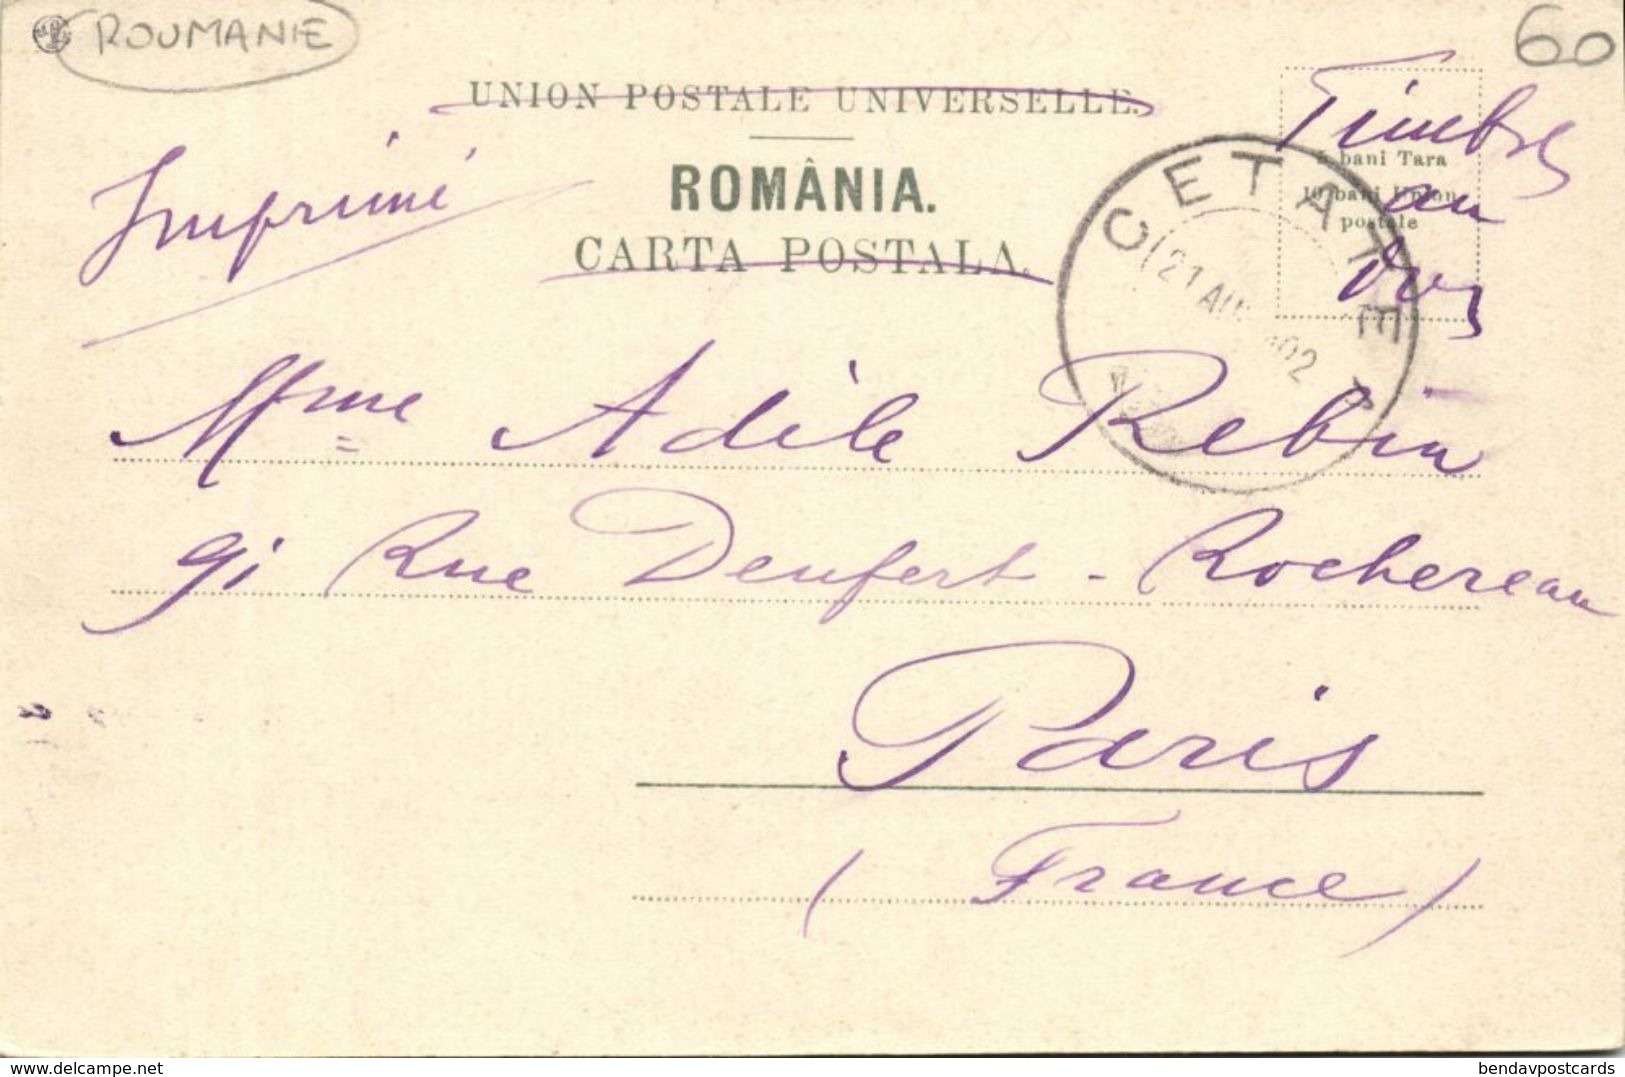 ROUMANIE
60
UNION POSTALE UNIVERSELLE.
ROMÂNIA.
CARTA POSTALA.
Imprimé
Timbre
au
dos
5 bani Tara
10 bani Union
postale
CETATE
21 AUG 902
Mme Adile Rebin
91 Rue Denfert-Rochereau
Paris
(France)
delcampe.net
bendavpostcards